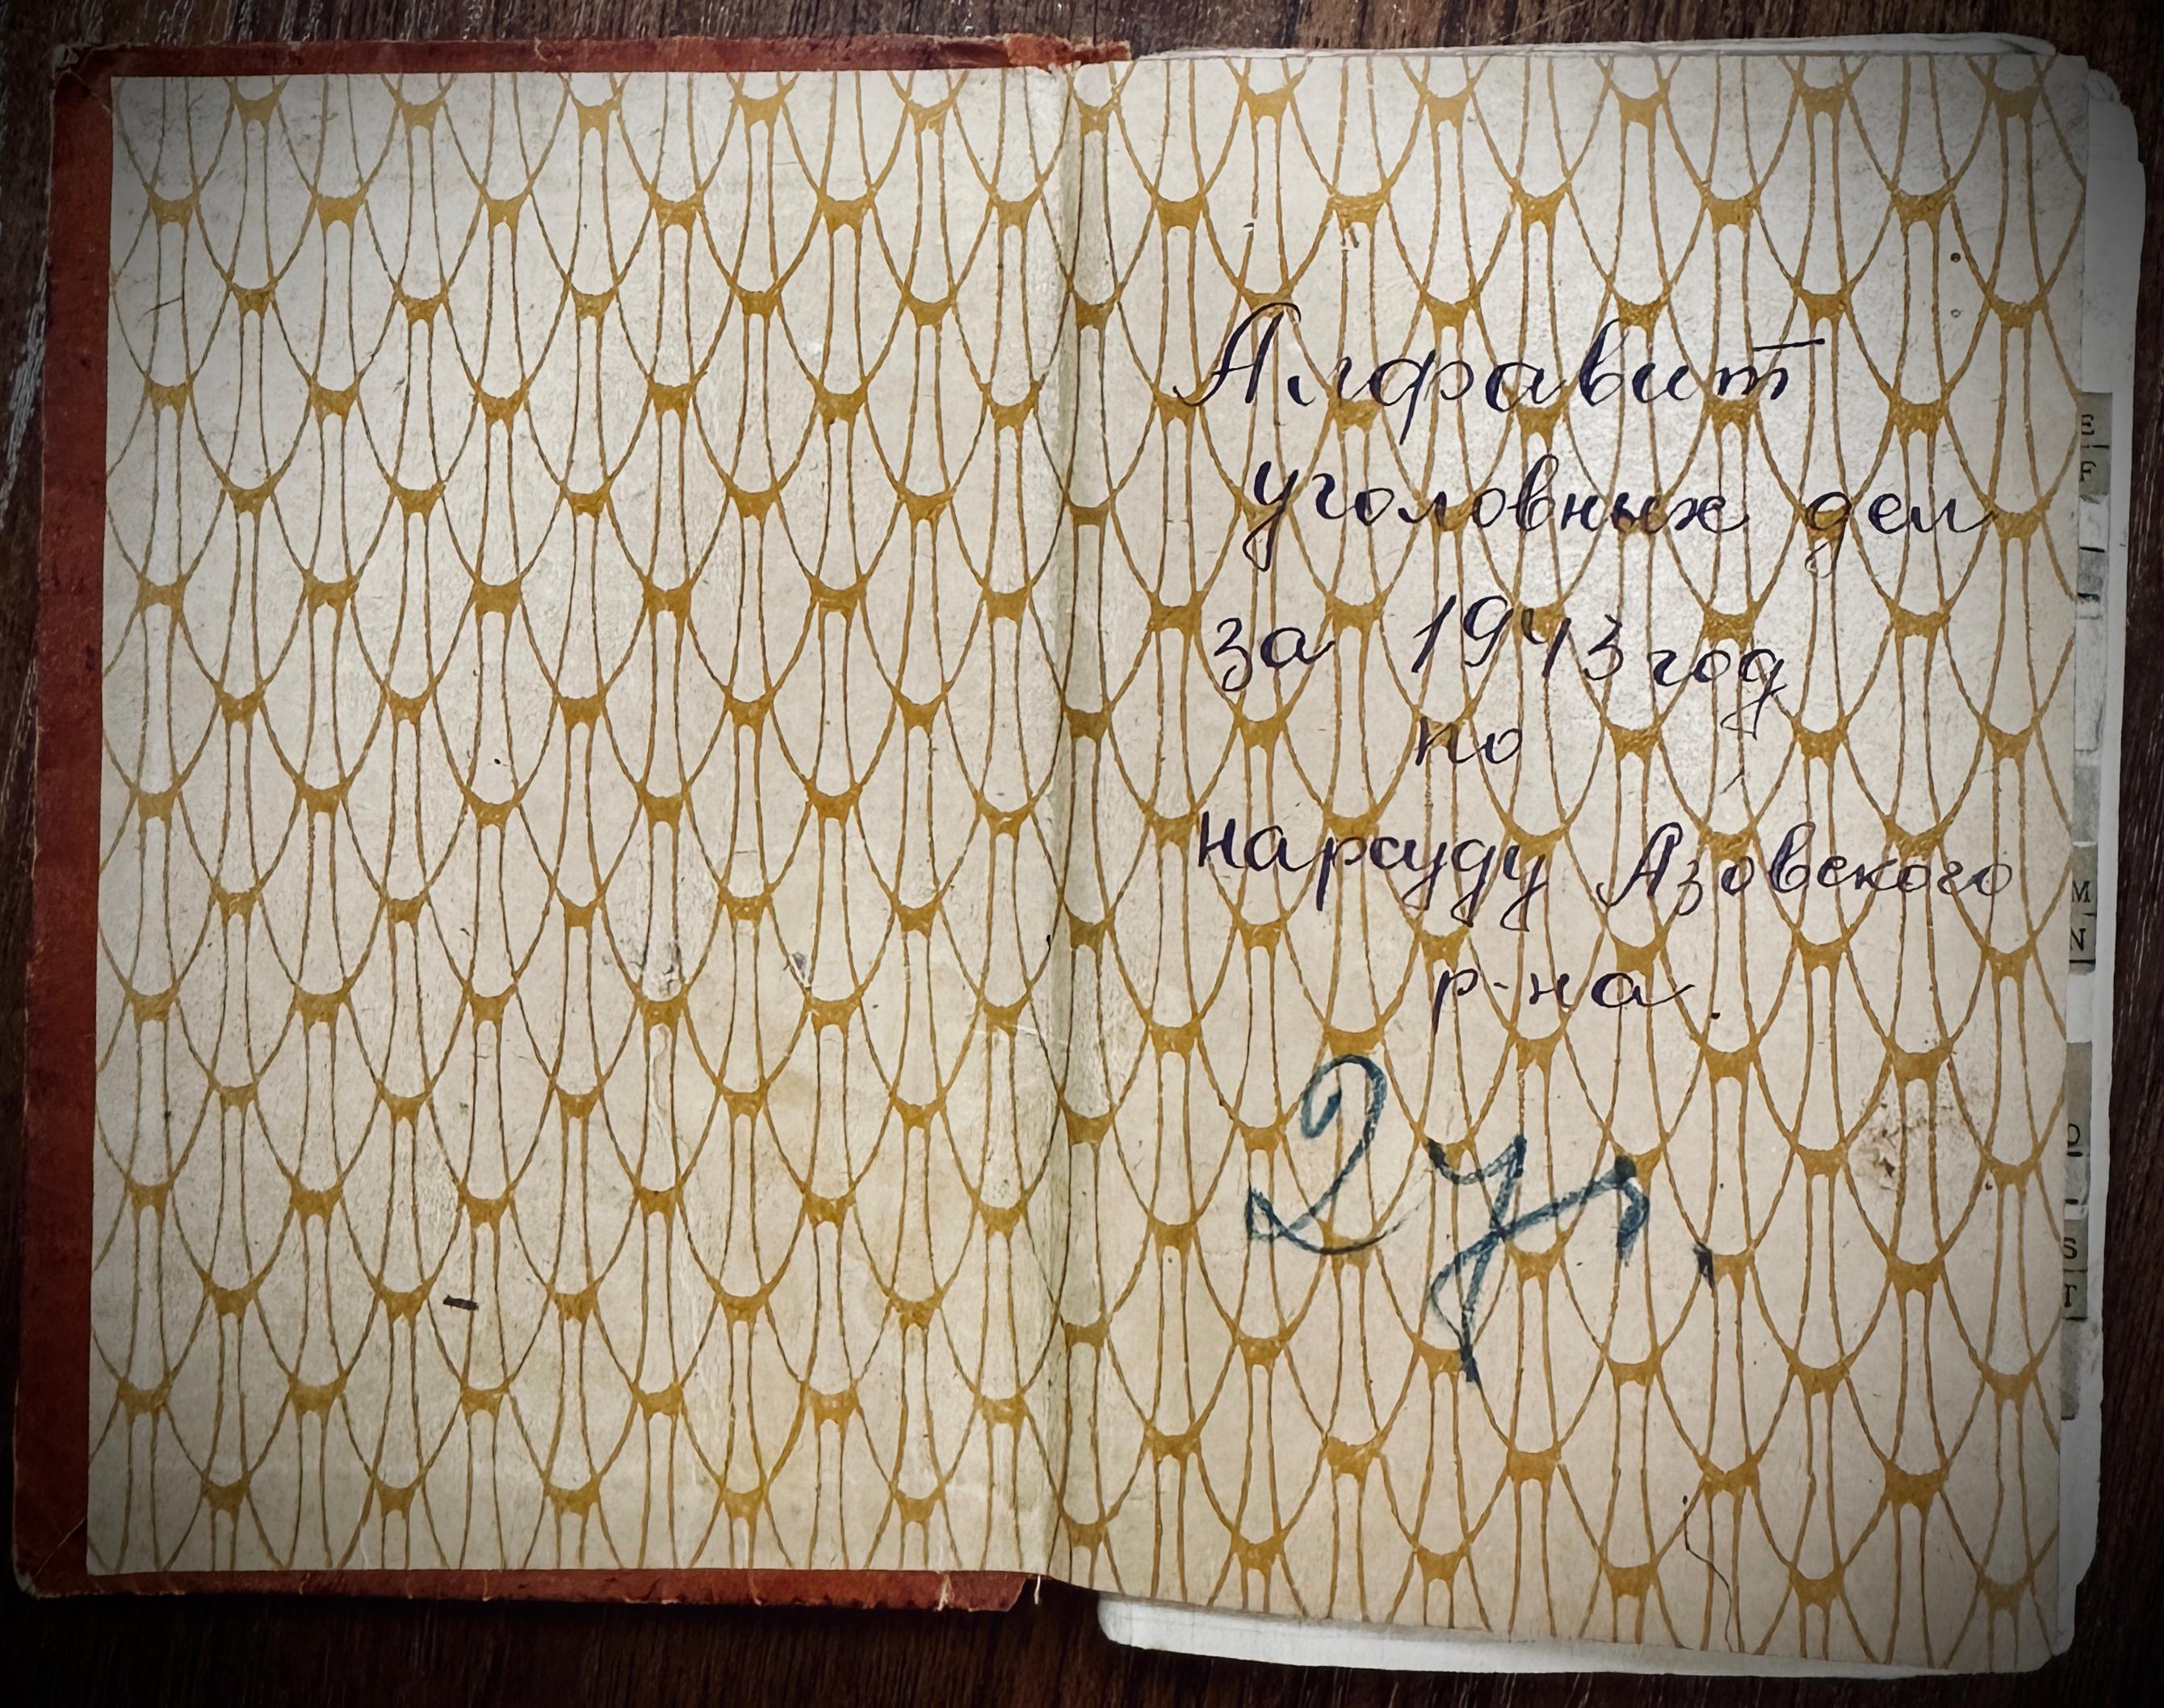 Алфавит
уголовных дел
за 1943 год
по
нарсуду Азовского
р-на.
2 уч.
E
F
M
N
O
S
T